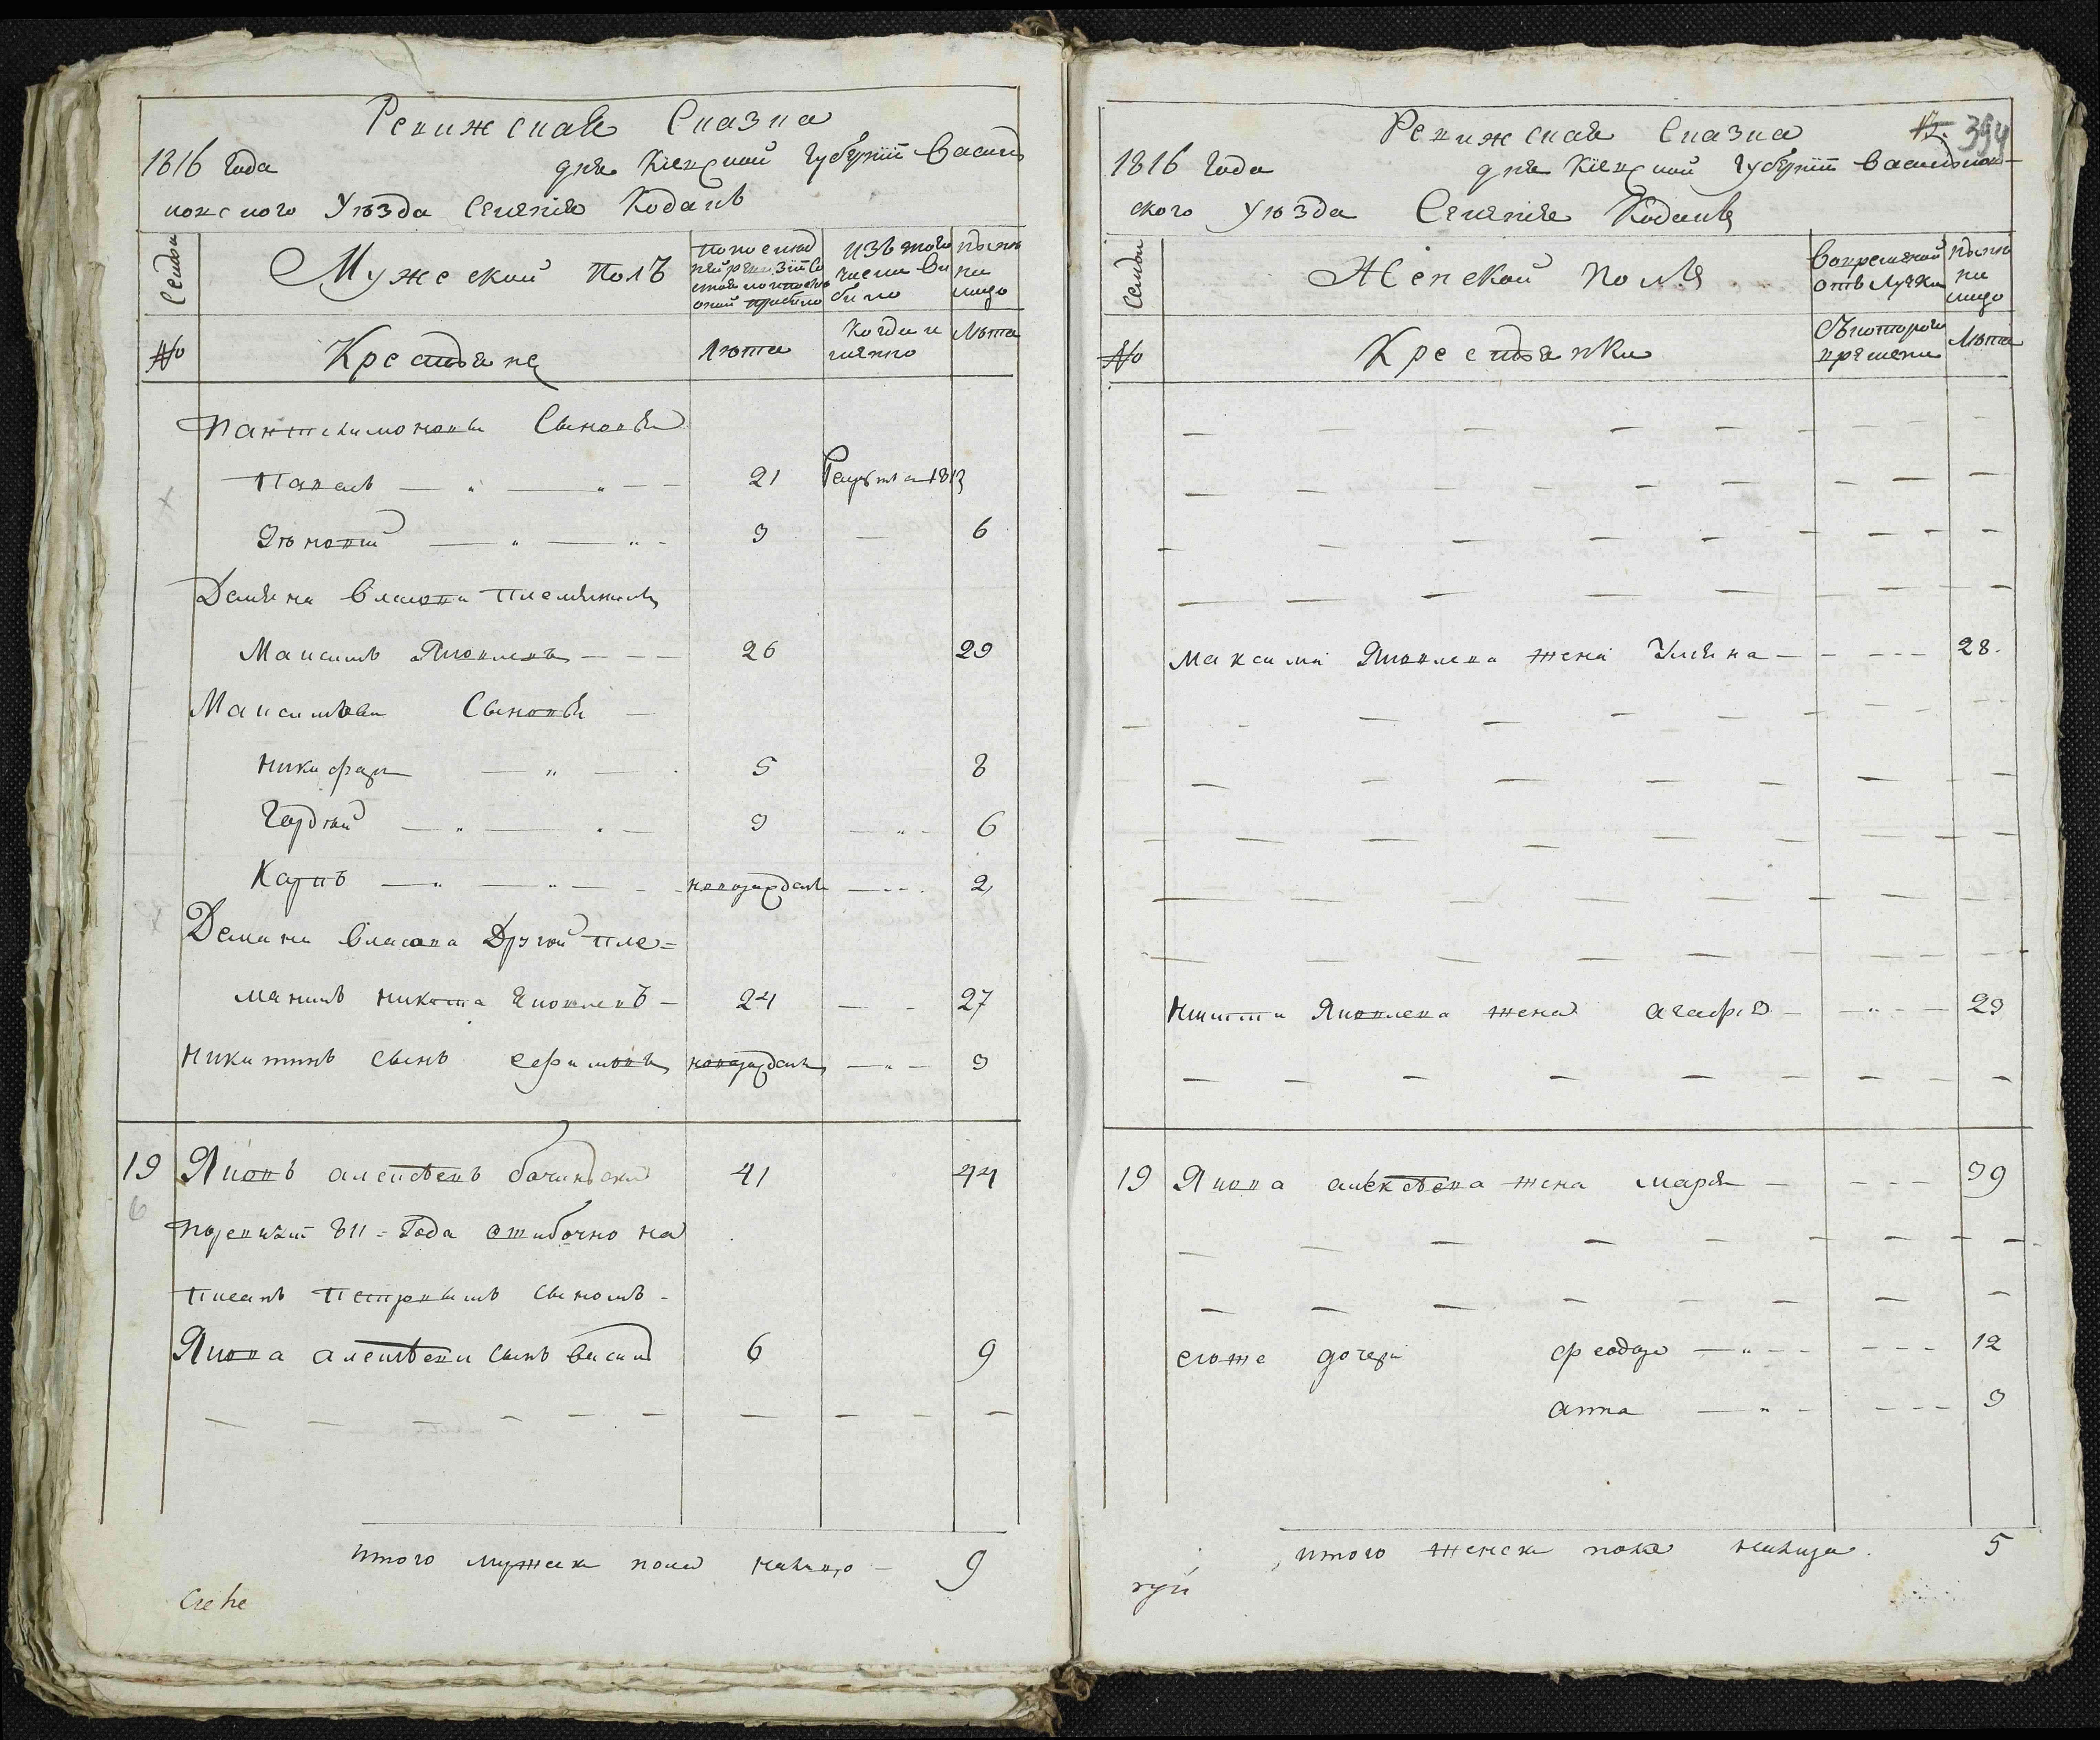 Ревижская Сказка
1816 Года дня Кіевской Губерніи Василь
ковского Уѣзда Селенія Кодакъ
Семьи
Мужеский полъ
По последней ревизіи состояло и после оной прибыло
Изъ того числа выбыло
Ныне на лицо
№
Крестьяне
Лѣта
Когда именно
Лѣта
Пантелимоновы Сыновья
Павелъ 21 Рекрутъ 1813
Зѣновій 3 6
Демяна Власова племянникъ
Максимъ Яковлевъ 26 29
Максимовы Сыновья
Никифоръ 5 8
Гордѣй 3 6
Карпъ новорожденъ 2
Демяна Власова Другой пле=
мяникъ Никита Яковлевъ 24 27
Никитинъ сынъ Ефимовъ новорожденъ 3
19 Яковъ Алексѣевъ 41 44
По ревизіи 811 Года ошибочно на
писанъ Петровымъ сыномъ
Якова Алексѣева сынъ Василь 6 9
Итого мужеска пола налицо 9
394
Ревижская Сказка
1816 Года дня Кіевской Губерніи Васильков-
ского Уѣзда Селенія Кодакъ
Семьи
Женской Полъ
Во временной отлучки
Ныне на лицо
№
Крестьянки
Съ которого времени
Лѣта
Максима Яковлева жена Ульяна 28
Никиты Яковлева жена Агафія 23
19 Якова Алексѣева жена Марья 39
его же дочери Феодора 12
Анна 3
Итого женска пола налицо 5